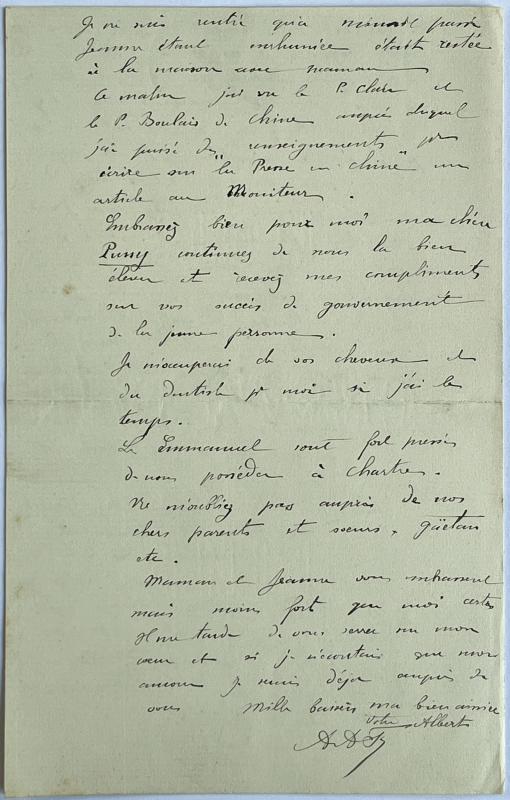 Je ne suis rentré qu'à minuit passé
Jeanne étant enrhumée était restée
à la maison avec maman
Ce matin j'ai vu le P. Clair et
le P. Boulais de Chine auprès duquel
j'ai puisé des renseignements pr
écrire sur "la Presse en Chine" un
article au Moniteur.
Embrassez bien pour moi ma chère
Pussy continuez de nous la bien
élever et recevez mes compliments
sur vos succès de gouvernement
de la jeune personne.
Je m'occuperai de vos cheveux et
du dentiste pr moi si j'ai le
temps.
Les Emmanuel sont fort pressés
de nous posséder à Chartres.
Ne m'oubliez pas auprès de nos
chers parents et sœurs, Gaëtan
etc.
Maman et Jeanne vous embrassent
mais moins fort que moi certes
Il me tarde de vous serrer sur mon
cœur et si je n'écoutais que mon
amour je serais déjà auprès de
vous Mille baisers ma bien aimée
Votre Albert